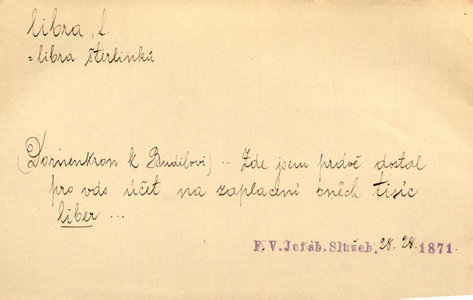 libra, f.
= libra šterlinků
(Dornenkron k Budilovi) .. Zde jsem právě dostal
pro vás účet na zaplacení oněch tisíc
liber ...
F. V. Jeřáb. Služeb. 28. 28. 1871.